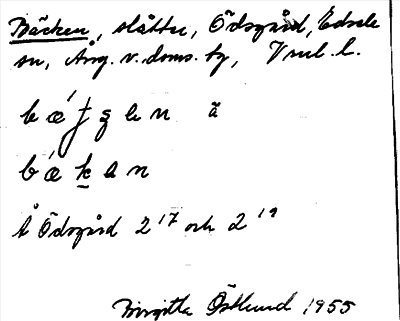 Bäcken, slåtter, Ödsgård, Edsele
sn, Ång. v. doms. tg, Vnl. l.
ä
bǽkan
Å Ödsgård 2¹⁷ och 2¹⁹
Birgitta Östlund 1955